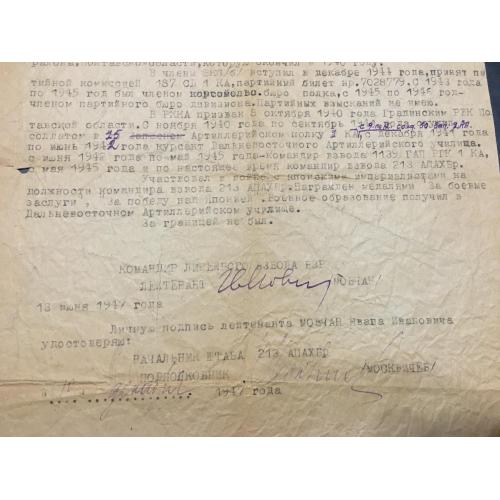 района, Полтавской области, которую окончил в 1940 году.
В члены ВКП/б/ вступил в декабре 1944 года, принят партийной комиссией 187 СД 1 КА, партийный билет нр. 7028779. С 1943 года
по 1945 год был членом бюро полка, с 1945 по 1946 год
членом партийного бюро дивизиона. Партийных взысканий не имею.
В РККА призван 5 октября 1940 года Градинским РВК Полтавской области. С ноября 1940 года по сентябрь
солдатом в 75 Артиллерийском полку декабря 1941
по июнь 1942 года курсант Дальневосточного Артиллерийского училища.
с июня 1942 года по май 1945 года командир взвода 1139 1 КА,
с мая 1945 года и по настоящее время командир взвода 213 АПАХБР.
Участвовал в войне с японскими империалистами на
должности командира взвода 213 АПАХБР. Награжден медалями "За боевые
заслуги", "За победу над Японией". Военное образование получил в
Дальневосточном Артиллерийском училище.
За границей не был.
КОМАНДИР ВЗВОДА
ЛЕЙТЕНАНТ /МОВЧАН/
18 июня 1947 года
Личную подпись лейтенанта МОВЧАН Ивана Ивановича
удостоверяю:
НАЧАЛЬНИК ШТАБА 213 АПАХБР
ПОДПОЛКОВНИК /МОСКВИЧЕВ/
1947 года